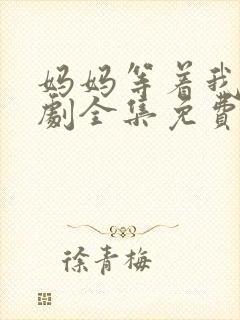 妈妈等着我
劇全集免費
徐青梅